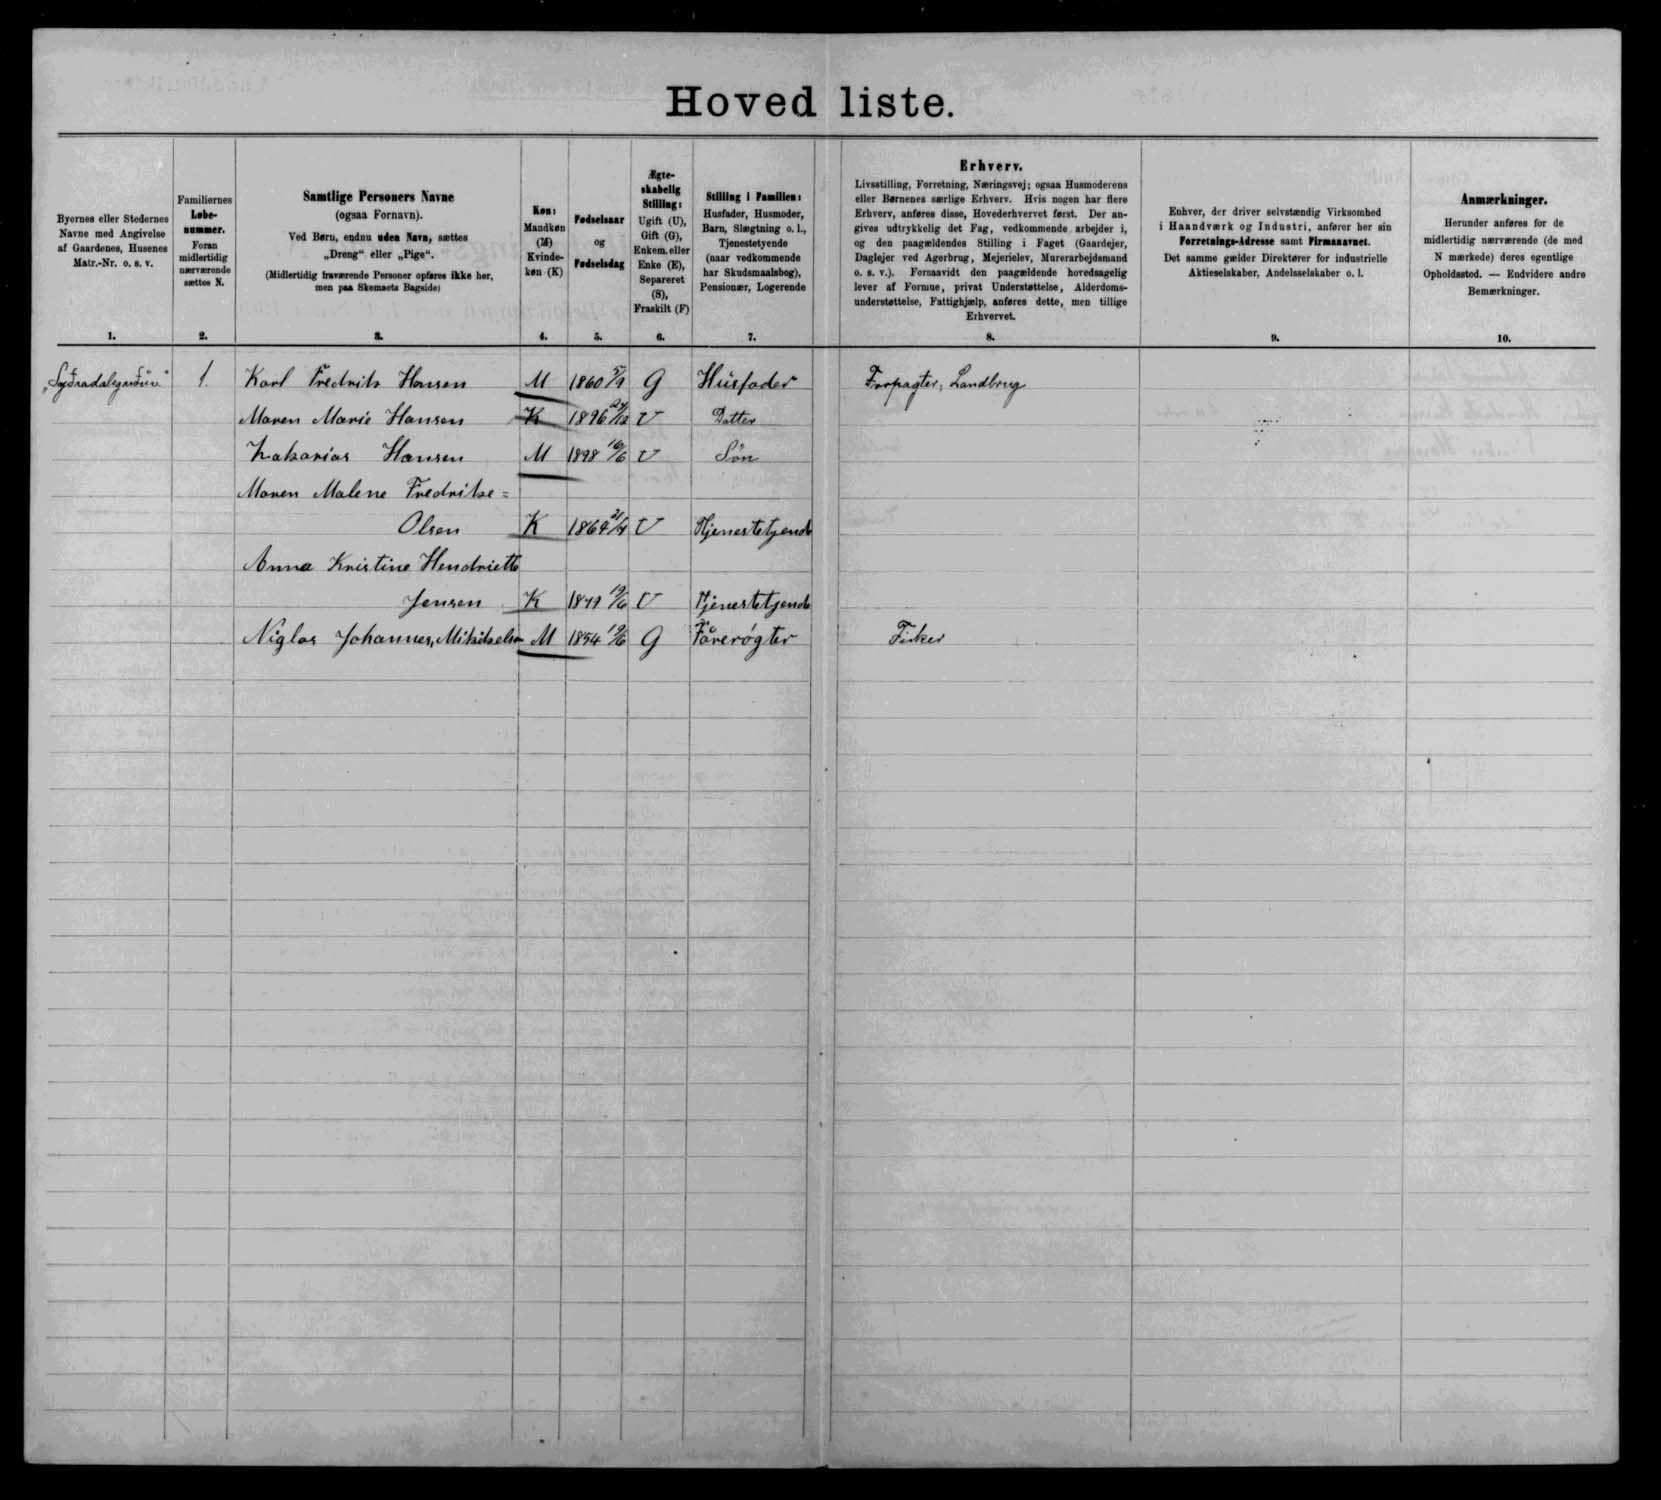 Hoved liste.
Byernes eller Stedernes
Navne med Angivelse
af Gaardenes, Husenes
Matr.-Nr. o. s. v.
1.
Familiernes
Løbe-
nummer.
Foran
midlertidig
nærværende
sættes N.
2.
Samtlige Personers Navne
(ogsaa Fornavn).
Ved Børn, endnu uden Navn, sættes
„Dreng“ eller „Pige“.
(Midlertidig fraværende Personer opføres ikke her,
men paa Skemaets Bagside)
3.
Køn:
Mandkøn
(M)
Kvinde-
køn (K)
4.
Fødselsaar
og
Fødselsdag
5.
Ægte-
skabelig
Stilling:
Ugift (U),
Gift (G),
Enkem. eller
Enke (E),
Separeret
(S),
Fraskilt (F)
6.
Stilling i Familien:
Husfader, Husmoder,
Barn, Slægtning o. l.,
Tjenestetyende
(naar vedkommende
har Skudsmaalsbog),
Pensionær, Logerende
7.
Erhverv.
Livsstilling, Forretning, Næringsvej; ogsaa Husmoderens
eller Børnenes særlige Erhverv. Hvis nogen har flere
Erhverv, anføres disse, Hovederhvervet først. Der an-
gives udtrykkelig det Fag, vedkommende arbejder i,
og den paagældendes Stilling i Faget (Gaardejer,
Daglejer ved Agerbrug, Mejerielev, Murerarbejdsmand
o. s. v.). Forsaavidt den paagældende hovedsagelig
lever af Formue, privat Understøttelse, Alderdoms-
understøttelse, Fattighjælp, anføres dette, men tillige
Erhvervet.
8.
Enhver, der driver selvstændig Virksomhed
i Haandværk og Industri, anfører her sin
Forretnings-Adresse samt Firmanavnet.
Det samme gælder Direktører for industrielle
Aktieselskaber, Andelsselskaber o. l.
9.
Anmærkninger.
Herunder anføres for de
midlertidig nærværende (de med
N mærkede) deres egentlige
Opholdssted. — Endvidere andre
Bemærkninger.
10.
1. Karl Fredrik Hansen M 1860 5/9 G Husfader Forpagter, Landbrug
Maren Marie Hansen K 1896 U Datter
Zakarias Hansen M 1898 16/6 U Søn
Maren Malene Fredrikke =
Olsen K 1864 U Tjenestetyende
Anna Kristine Hendriette
Jensen K U Tjenestetyende
Niglas Johannes Mikkelsen M 1854 19/6 G Fårerøgter Fisker